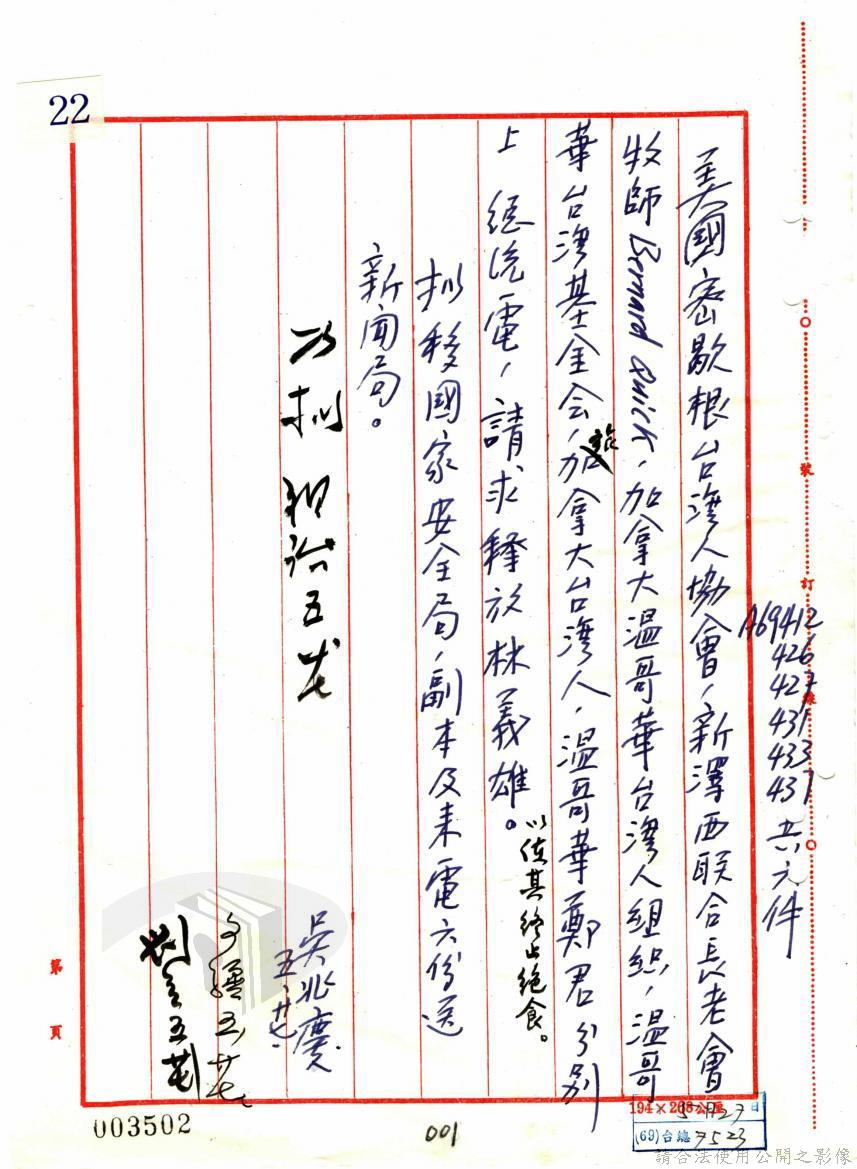 22
A69412
426
427
431
433
437 共六件
美國密歇根台灣人協會，新澤西联合長老會
牧師Bernard Quick，加拿大温哥華台灣人組織，温哥
華台灣基金会，加拿大台灣人，温哥華鄭君分別
上 總統電，請求釋放林義雄。以使其終止絕食。
拟移國家安全局，副本及来電六份送
新聞局。
吳兆慶
五、廿七
裝
訂
線
第
頁
003502
001
194×268公厘
5月27日
(69)台總 7523
請合法使用公開之影像